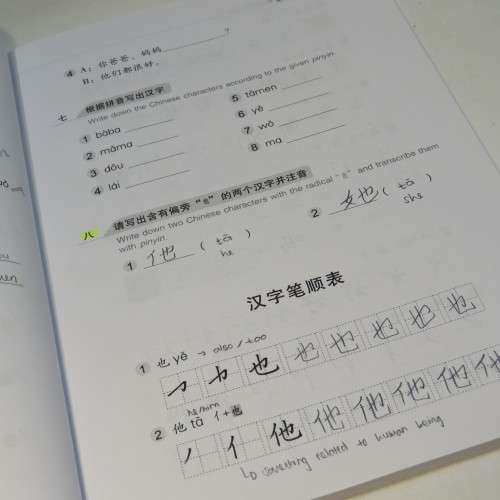 4 A：你爸爸、妈妈 ?
B：他们都很好。
七 根据拼音写出汉字
Write down the Chinese characters according to the given pinyin.
1 bàba
2 māma
3 dōu
4 lái
5 tāmen
6 yě
7 wǒ
8 ma
八 请写出含有偏旁“也”的两个汉字并注音
Write down two Chinese characters with the radical "也" and transcribe them
with pinyin.
1 他 ( tā )
he
2 她 ( tā )
she
汉字笔顺表
1 也 yě → also / too
也 也 也 也 也 也
he/him
2 他 tā 亻+也
亻 他 他 他 他 他 他
↳ something related to human being